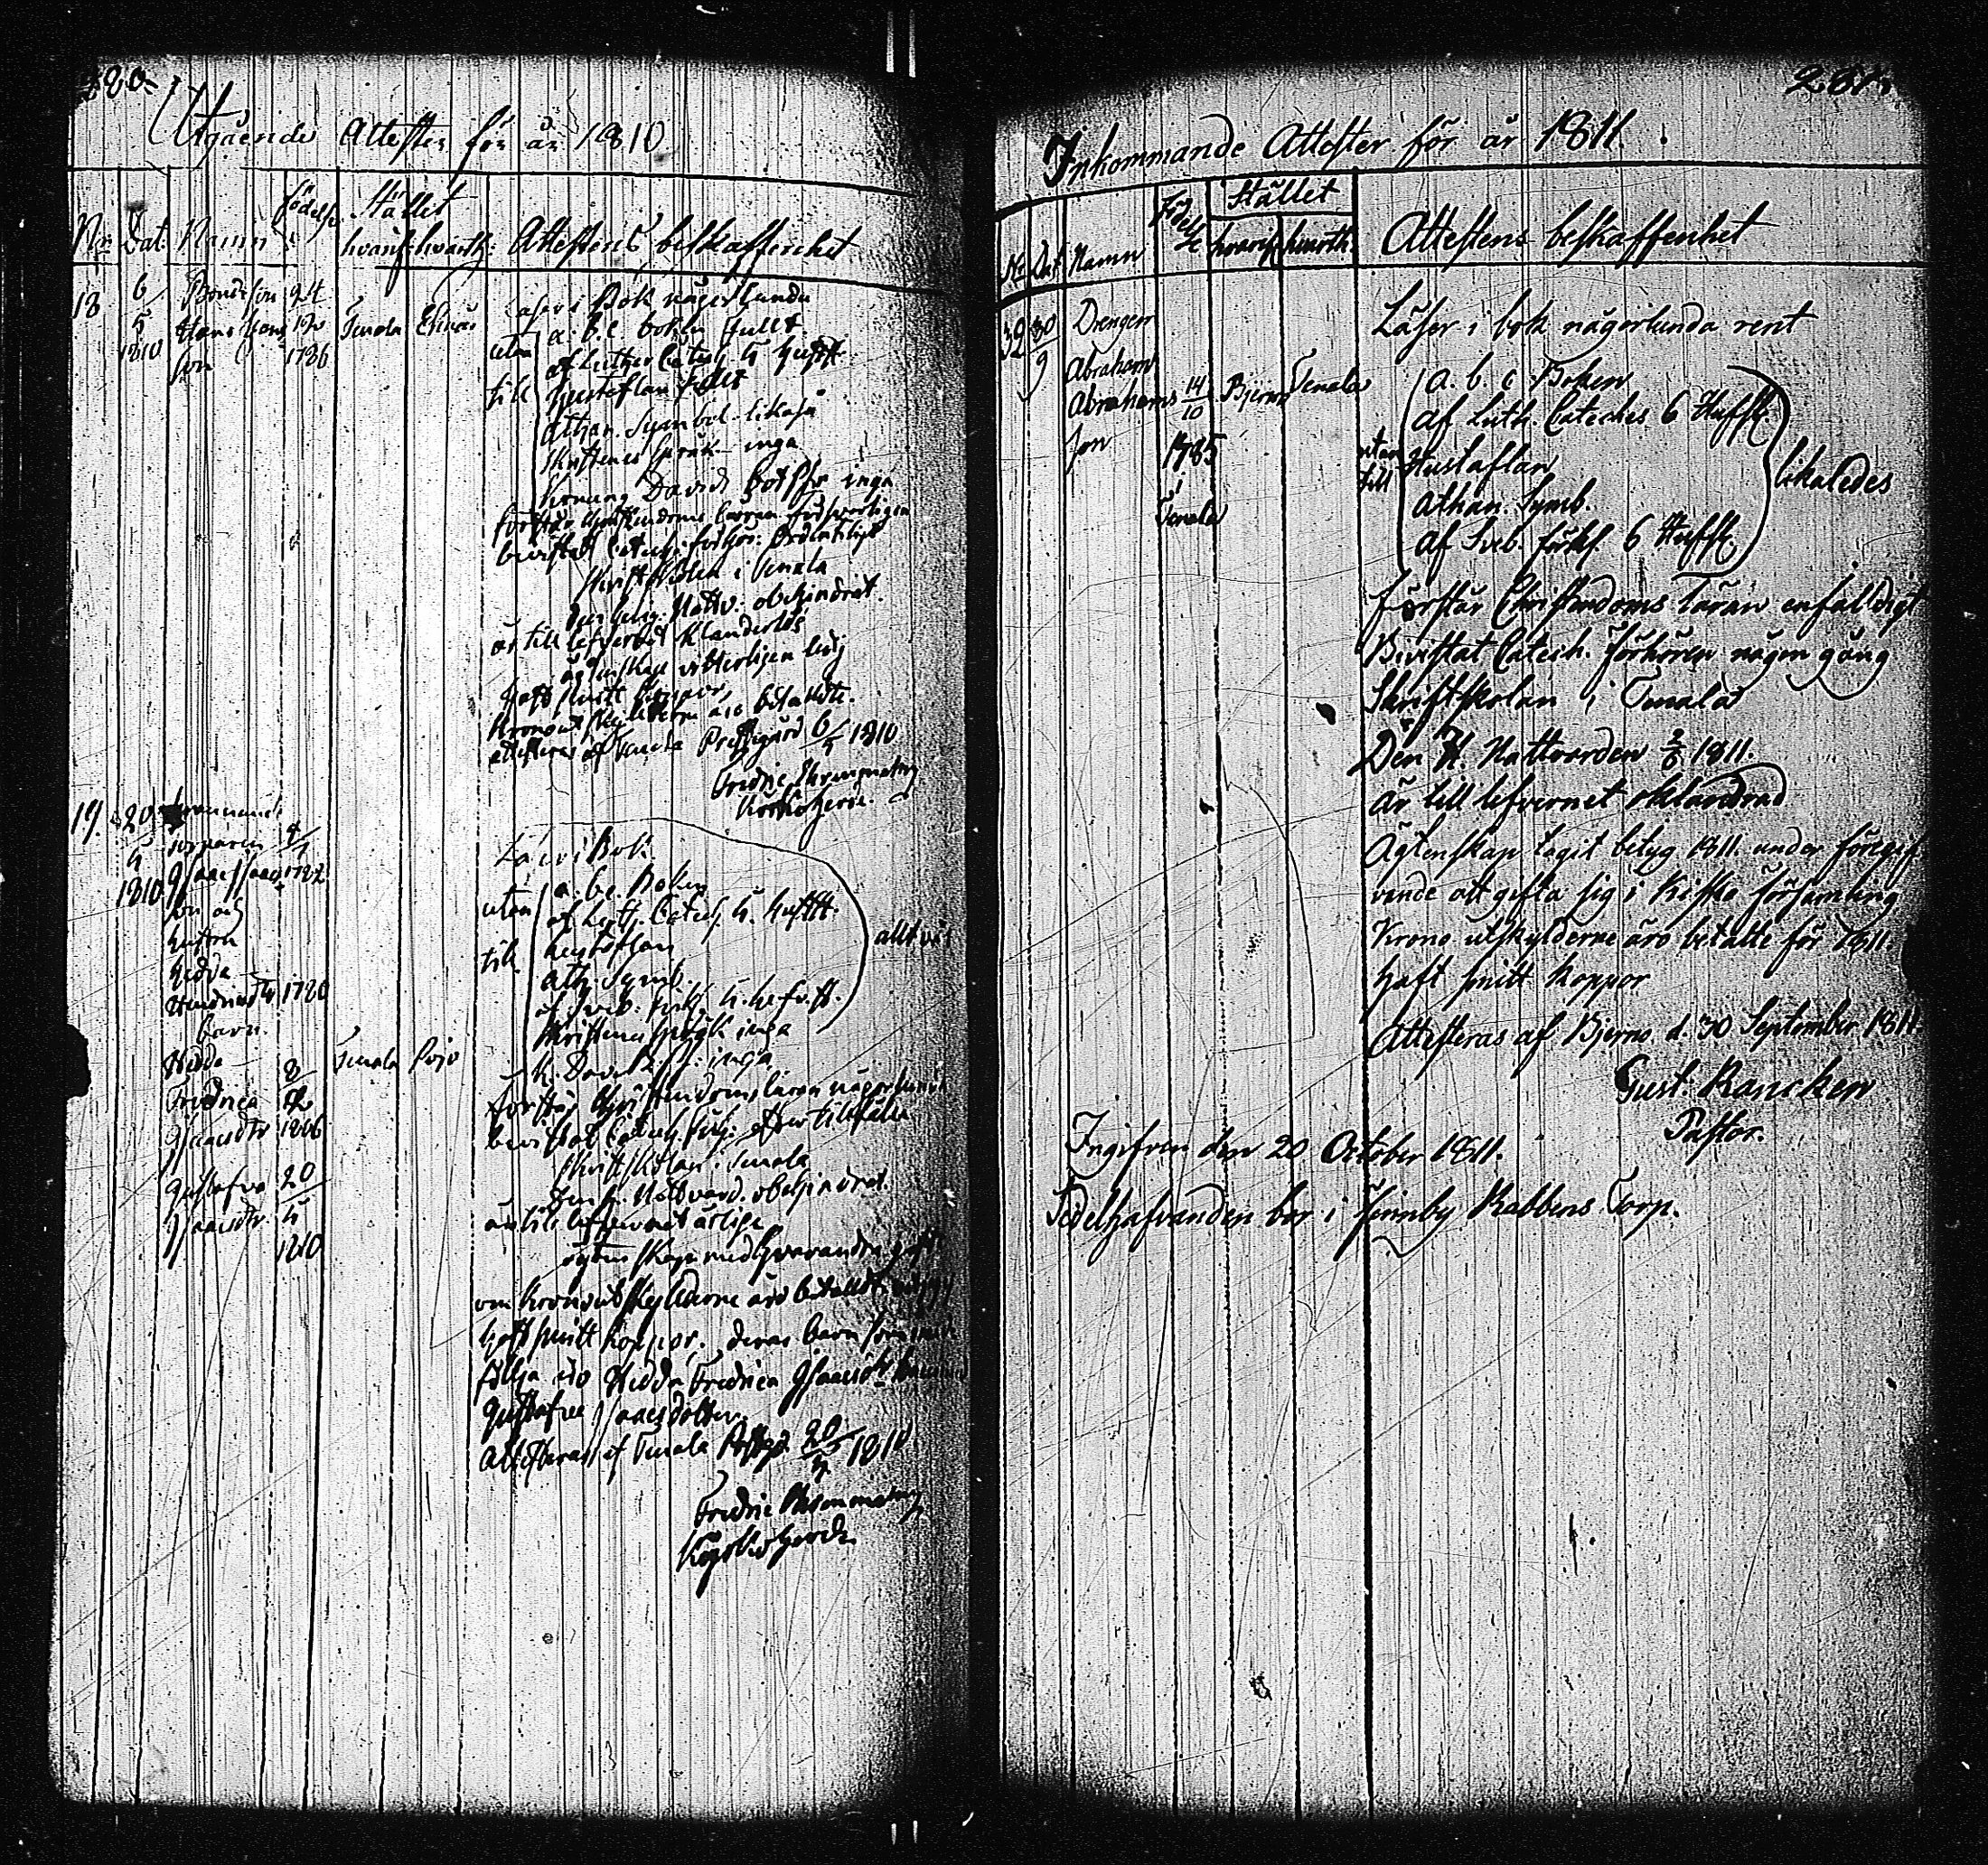 280.
Utgående Attester för år 1810
Födelse Stället
Nr Dat. Namn hvarif. hvarth: Attestens beskaffenhet
18 6/5 1810
Bondeson
Hans Hans
son
24
1786
Tenala Eknäs
Läser i Bok någorlunda
utan till
a. b. c. boken fullt
af Luther Catech. 5 Hufst.
Hustaflan fullt
Athan. Symbol. likaså
Skriftenes språk inga
Konung Davids botps. inga
förstår Christendoms Lärran
bevistat Catech. förhör: Ordentligt
Skriftskolan i Tenala
Den helig. Nattv. obehindrat.
är till lefvernet Klanderlös
ägtenskap vitterligen ledig
haft smitt Koppor,
Kronoutskylderna äro betalda.
attesteras af Tenala Prestgård 6/5 1810
Fredric Ehrnmalm
Kyrkoherde.
19. 20/5 1810
torparen
Isaac Isaacs
son och
hustru
Hedda
Hendricsdtr 1780
barn.
Hedda
Fredrica
Isaacsdtr 1806
Gustafva 20
Isaacsdtr. 5
1810
Tenala Pojo
Läser i Bok
utan till
a. b. c. Boken
af Luth. Catech. 5. Hufst.
hustaflan
Ath. Symb.
af Sveb. förkl. 5. hufvst.
allt väl
Skriftenes språk inga
K. Dav. B. ps: inga
förstår Christendoms läran någorlunda
bevistat Catech. förh: efter tillfälle
Skriftskolan i Tenala
Den h. Nattvard. obehindrat.
äro till lefvernet ärlige
ägtenskap med hvarandra
Kronoutskylderna äro betalda
haft smitt koppor. deras barn som
följa äro Hedda Fredrica Isaacsdtr
Gustafva Isaacsdotter.
Attesteras af Tenala Prestgd. 20/5 1810
Fredric Ehrnmalm
Kyrkoherde
281.
Inkommande Attester för år 1811.
Födelse Stället
Nr Dat. Namn hvarif. hvarth. Attestens beskaffenhet
32 30/9
Drengen
Abraham
Abrahams
son
14/10
1785
i
Tenala
Bjerno Tenala
Läser i bok någorlunda rent
utan till
A. b. c. Boken
af Luth. Cateches 6 Hufst.
Hustaflan
Athan. Symb.
af Sveb. förkl. 6 Hufst.
likaledes
Förstår Christendoms Läran enfaldigt
Bivistat Catech. Förhören någon gång
Skriftskolan i Tenala
Den H. Nattvarden 2/6 1811.
Är till lefvernet oklandrad
Ägtenskap tagit betyg 1811. under föregif
vande att gifta sig i Kisko församling
Krono utskylderne äro betalte för 1811.
haft smitt koppor
Attesteras af Bjerno d. 30 September 1811
Gust. Rancken
Pastor.
Ingifven den 20 October 1811.
Sedelhafvanden bor i Finnby Rabbens Torp.